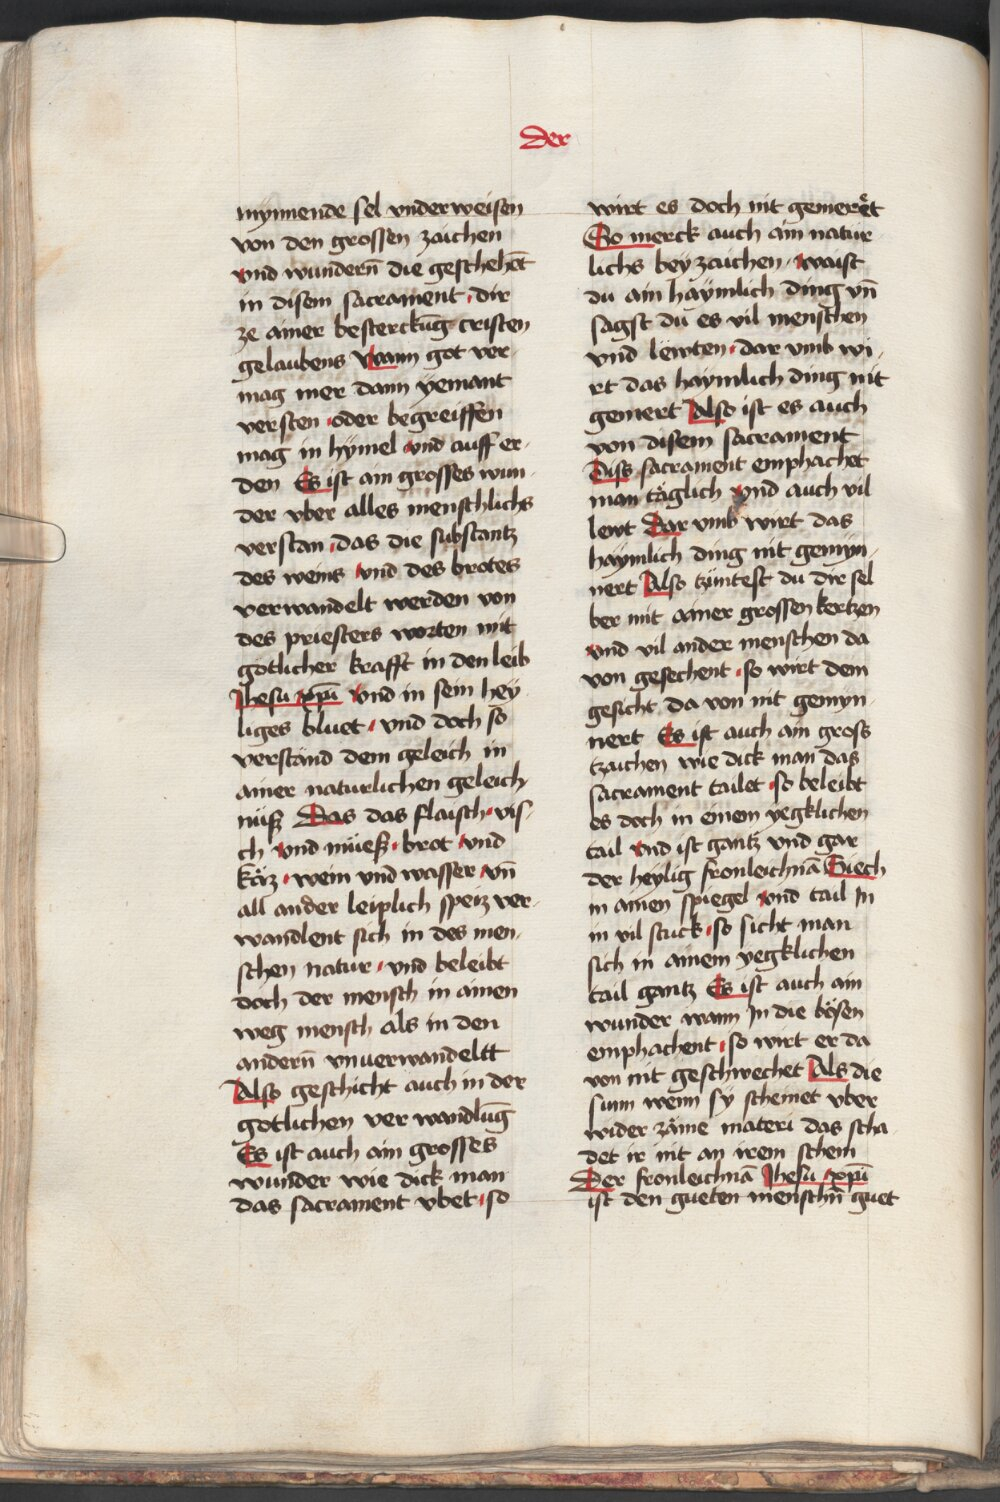 der
mynnende sel vnderweisen
von den grossen zaichen
vnd wundern̄ die geschehēt
in disem sacrament · dir
ze ainer besterckūg cristen
gelaubens Wann got ver-
mag mer dann yemant
versten · oder begreiffen
mag in hymel vnd auff er-
den Es ist ain grosses wun-
der vber alles menschlichs
verstan · das die substantz
des weins · vnd des brotes
verwandelt werden von
des priesters worten mit
götlicher krafft in den leib
Jhesu xp̄ī vnd in sein hey
liges bluet · vnd doch so
verständ dem geleich in
ainer naturlichen geleich
nüsz Das das flaisch · vis-
ch vnd müesz · brot · vnd
käz · wein vnd wasser · vn̄
all ander leiplich speiz ver-
wandlent sich in des men-
schen natur · vnd beleibt
doch der mensch in ainen
weg mensch als in den
andern̄ vnuerwandeltt
Also geschicht auch in der
gotlichen verwandlūg
Es ist auch ain grosses
wunder wie dick man
das sacrament vbet · so
wirt es doch nit gemeret
So merck auch ain natür
lichs beyzaichen · waist
du ain haymlich ding vn̄
sagst du es vil menschen
vnd lewten · dar vmb wi-
rt das haymlich ding nit
gemert Also ist es auch
von disem sacrament
Diss sacrament emphachet
man täglich vnd auch vil
lewt Dar vmb wirt das
haymlich ding nit gemyn-
nert Also tzüntest du dir sel
ber mit ainer grossen kertzen
vnd vil ander menschen da
von gesechent · so wirt dem
gesicht da von nit gemyn-
nert Es ist auch ain gross
tzaichen wie dick man das
sacrament tailet · so beleibt
es doch in einem yegklichen
tail vnd ist gantz vnd gar
der heylig fronleichnā Siech
in ainen spiegel vnd tail In
in vil stuck · so sicht man
sich in ainem yegklichen
tail gantz Es ist auch ain
wunder wann In die bösen
emphachent · so wirt er da
von nit geschwechet Als die
sunn wenn sy scheinet vber
wider zäme materi das scha-
det ir nit an irem schein
Der fronleichnā Jhesu xp̄ī
ist den gueten menschn̄ guet